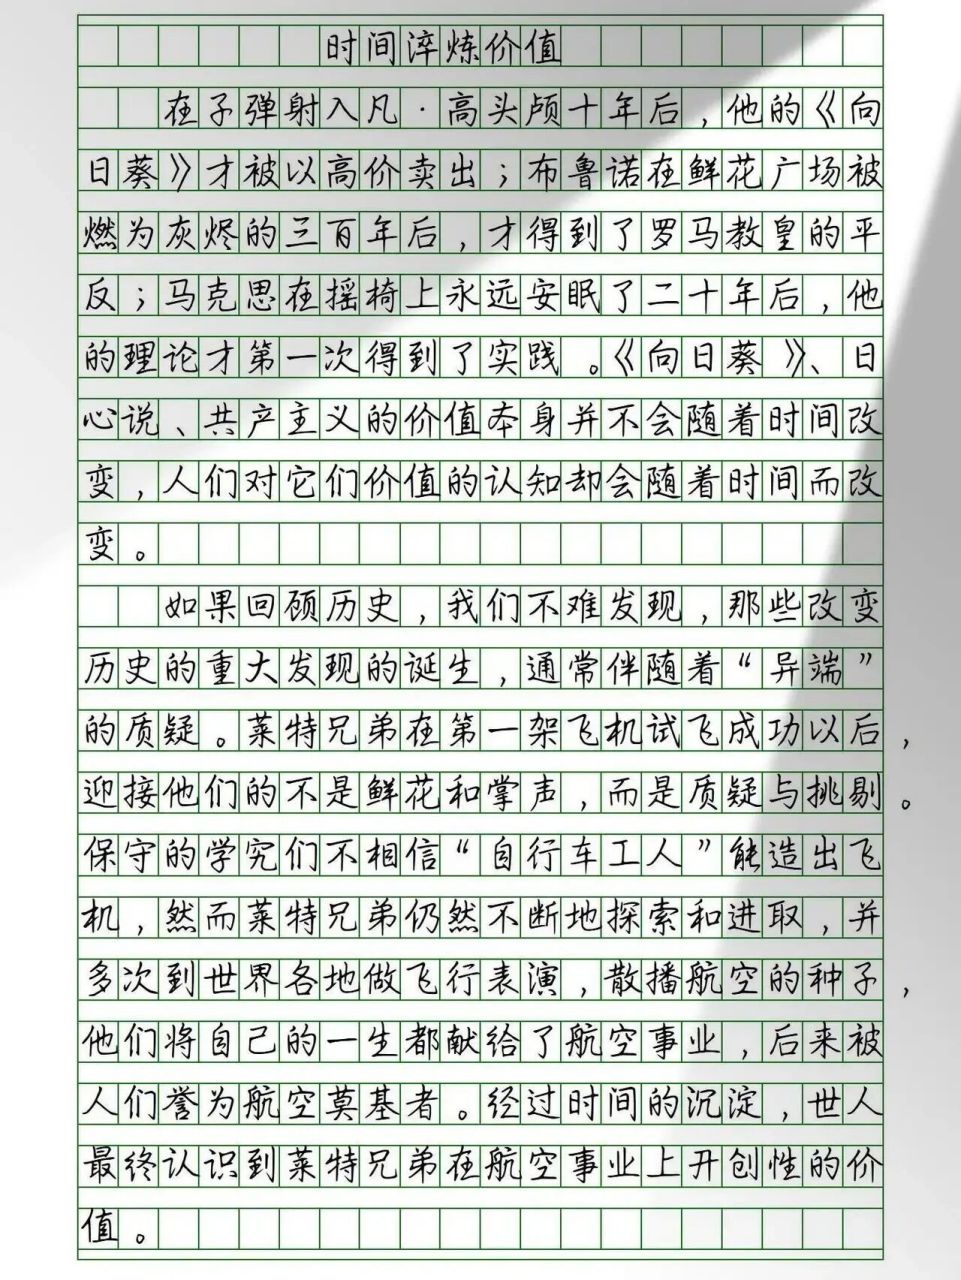 时间淬炼价值
在子弹射入凡·高头颅十年后，他的《向
日葵》才被以高价卖出；布鲁诺在鲜花广场被
燃为灰烬的三百年后，才得到了罗马教皇的平
反；马克思在摇椅上永远安眠了二十年后，他
的理论才第一次得到了实践。《向日葵》、日
心说、共产主义的价值本身并不会随着时间改
变，人们对它们价值的认知却会随着时间而改
变。
如果回顾历史，我们不难发现，那些改变
历史的重大发现的诞生，通常伴随着“异端”
的质疑。莱特兄弟在第一架飞机试飞成功以后，
迎接他们的不是鲜花和掌声，而是质疑与挑剔。
保守的学究们不相信“自行车工人”能造出飞
机，然而莱特兄弟仍然不断地探索和进取，并
多次到世界各地做飞行表演，散播航空的种子，
他们将自己的一生都献给了航空事业，后来被
人们誉为航空莫基者。经过时间的沉淀，世人
最终认识到莱特兄弟在航空事业上开创性的价
值。